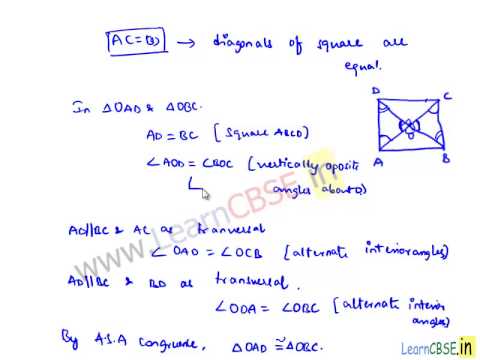 AC=BD → diagonals of square are
equal.
In △OAD & △OBC.
AD = BC [Square ABCD]
∠AOD = ∠BOC (vertically opposite
angles about O)
D C
O
A B
AD||BC & AC as tranversal
∠OAD = ∠OCB (alternate interior angles)
AD||BC & BD as transversal.
∠ODA = ∠OBC (alternate interior
angles)
By A.S.A congruence, △OAD ≅ △OBC.
www.LearnCBSE.in
LearnCBSE.in